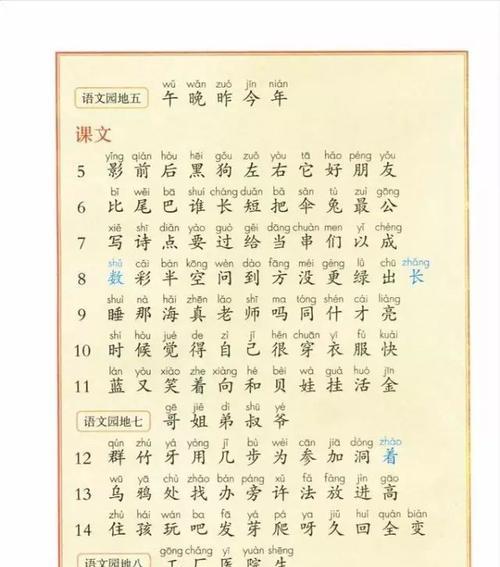 wǔ wǎn zuó jīn nián
语文园地五 午 晚 昨 今 年
课文
yǐng qián hòu hēi gǒu zuǒ yòu tā hǎo péng yǒu
5 影 前 后 黑 狗 左 右 它 好 朋 友
bǐ wěi bā shuí cháng duǎn bǎ sǎn tù zuì gōng
6 比 尾 巴 谁 长 短 把 伞 兔 最 公
xiě shī diǎn yào guò gěi dāng chuàn men yǐ chéng
7 写 诗 点 要 过 给 当 串 们 以 成
shǔ cǎi bàn kōng wèn dào fāng méi gèng lǜ chū zhǎng
8 数 彩 半 空 问 到 方 没 更 绿 出 长
shuì nà hǎi zhēn lǎo shī ma tóng shí cái liàng
9 睡 那 海 真 老 师 吗 同 什 才 亮
shí hòu jué de zì jǐ hěn chuān yī fú kuài
10 时 候 觉 得 自 己 很 穿 衣 服 快
lán yòu xiào zhe xiàng hé bèi wá guà huó jīn
11 蓝 又 笑 着 向 和 贝 娃 挂 活 金
gē jiě dì shū yé
语文园地七 哥 姐 弟 叔 爷
qún zhú yá yòng jǐ bù wèi cān jiā dòng zháo
12 群 竹 牙 用 几 步 为 参 加 洞 着
wū yā chù zhǎo bàn páng xǔ fǎ fàng jìn gāo
13 乌 鸦 处 找 办 旁 许 法 放 进 高
zhù hái wán ba fā yá pá ya jiǔ huí quán biàn
14 住 孩 玩 吧 发 芽 爬 呀 久 回 全 变
gōng chǎng yī yuàn shēng
语文园地八 工 厂 医 院 生